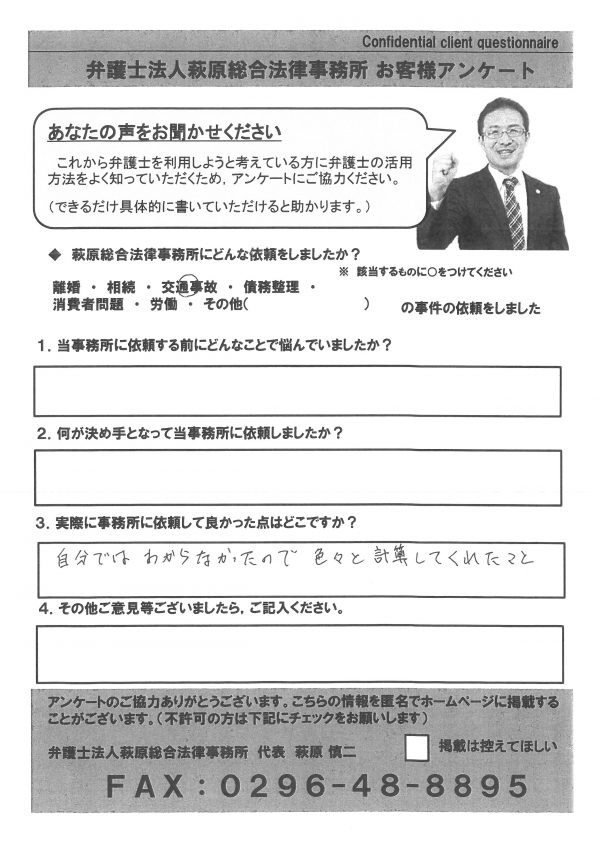 Confidential client questionnaire
弁護士法人萩原総合法律事務所 お客様アンケート
あなたの声をお聞かせください
これから弁護士を利用しようと考えている方に弁護士の活用
方法をよく知っていただくため，アンケートにご協力ください。
（できるだけ具体的に書いていただけると助かります。）
◆ 萩原総合法律事務所にどんな依頼をしましたか？
※ 該当するものに○をつけてください
離婚 ・ 相続 ・ 交通事故 ・ 債務整理 ・
消費者問題 ・ 労働 ・ その他( ) の事件の依頼をしました
１．当事務所に依頼する前にどんなことで悩んでいましたか？
２．何が決め手となって当事務所に依頼しましたか？
３．実際に事務所に依頼して良かった点はどこですか？
自分では わからなかったので 色々と 計算してくれたこと
４．その他ご意見等ございましたら，ご記入ください。
アンケートのご協力ありがとうございます。こちらの情報を匿名でホームページに掲載する
ことがございます。（不許可の方は下記にチェックをお願いします）
弁護士法人萩原総合法律事務所 代表 萩原 慎二
掲載は控えてほしい
ＦＡＸ：０２９６－４８－８８９５